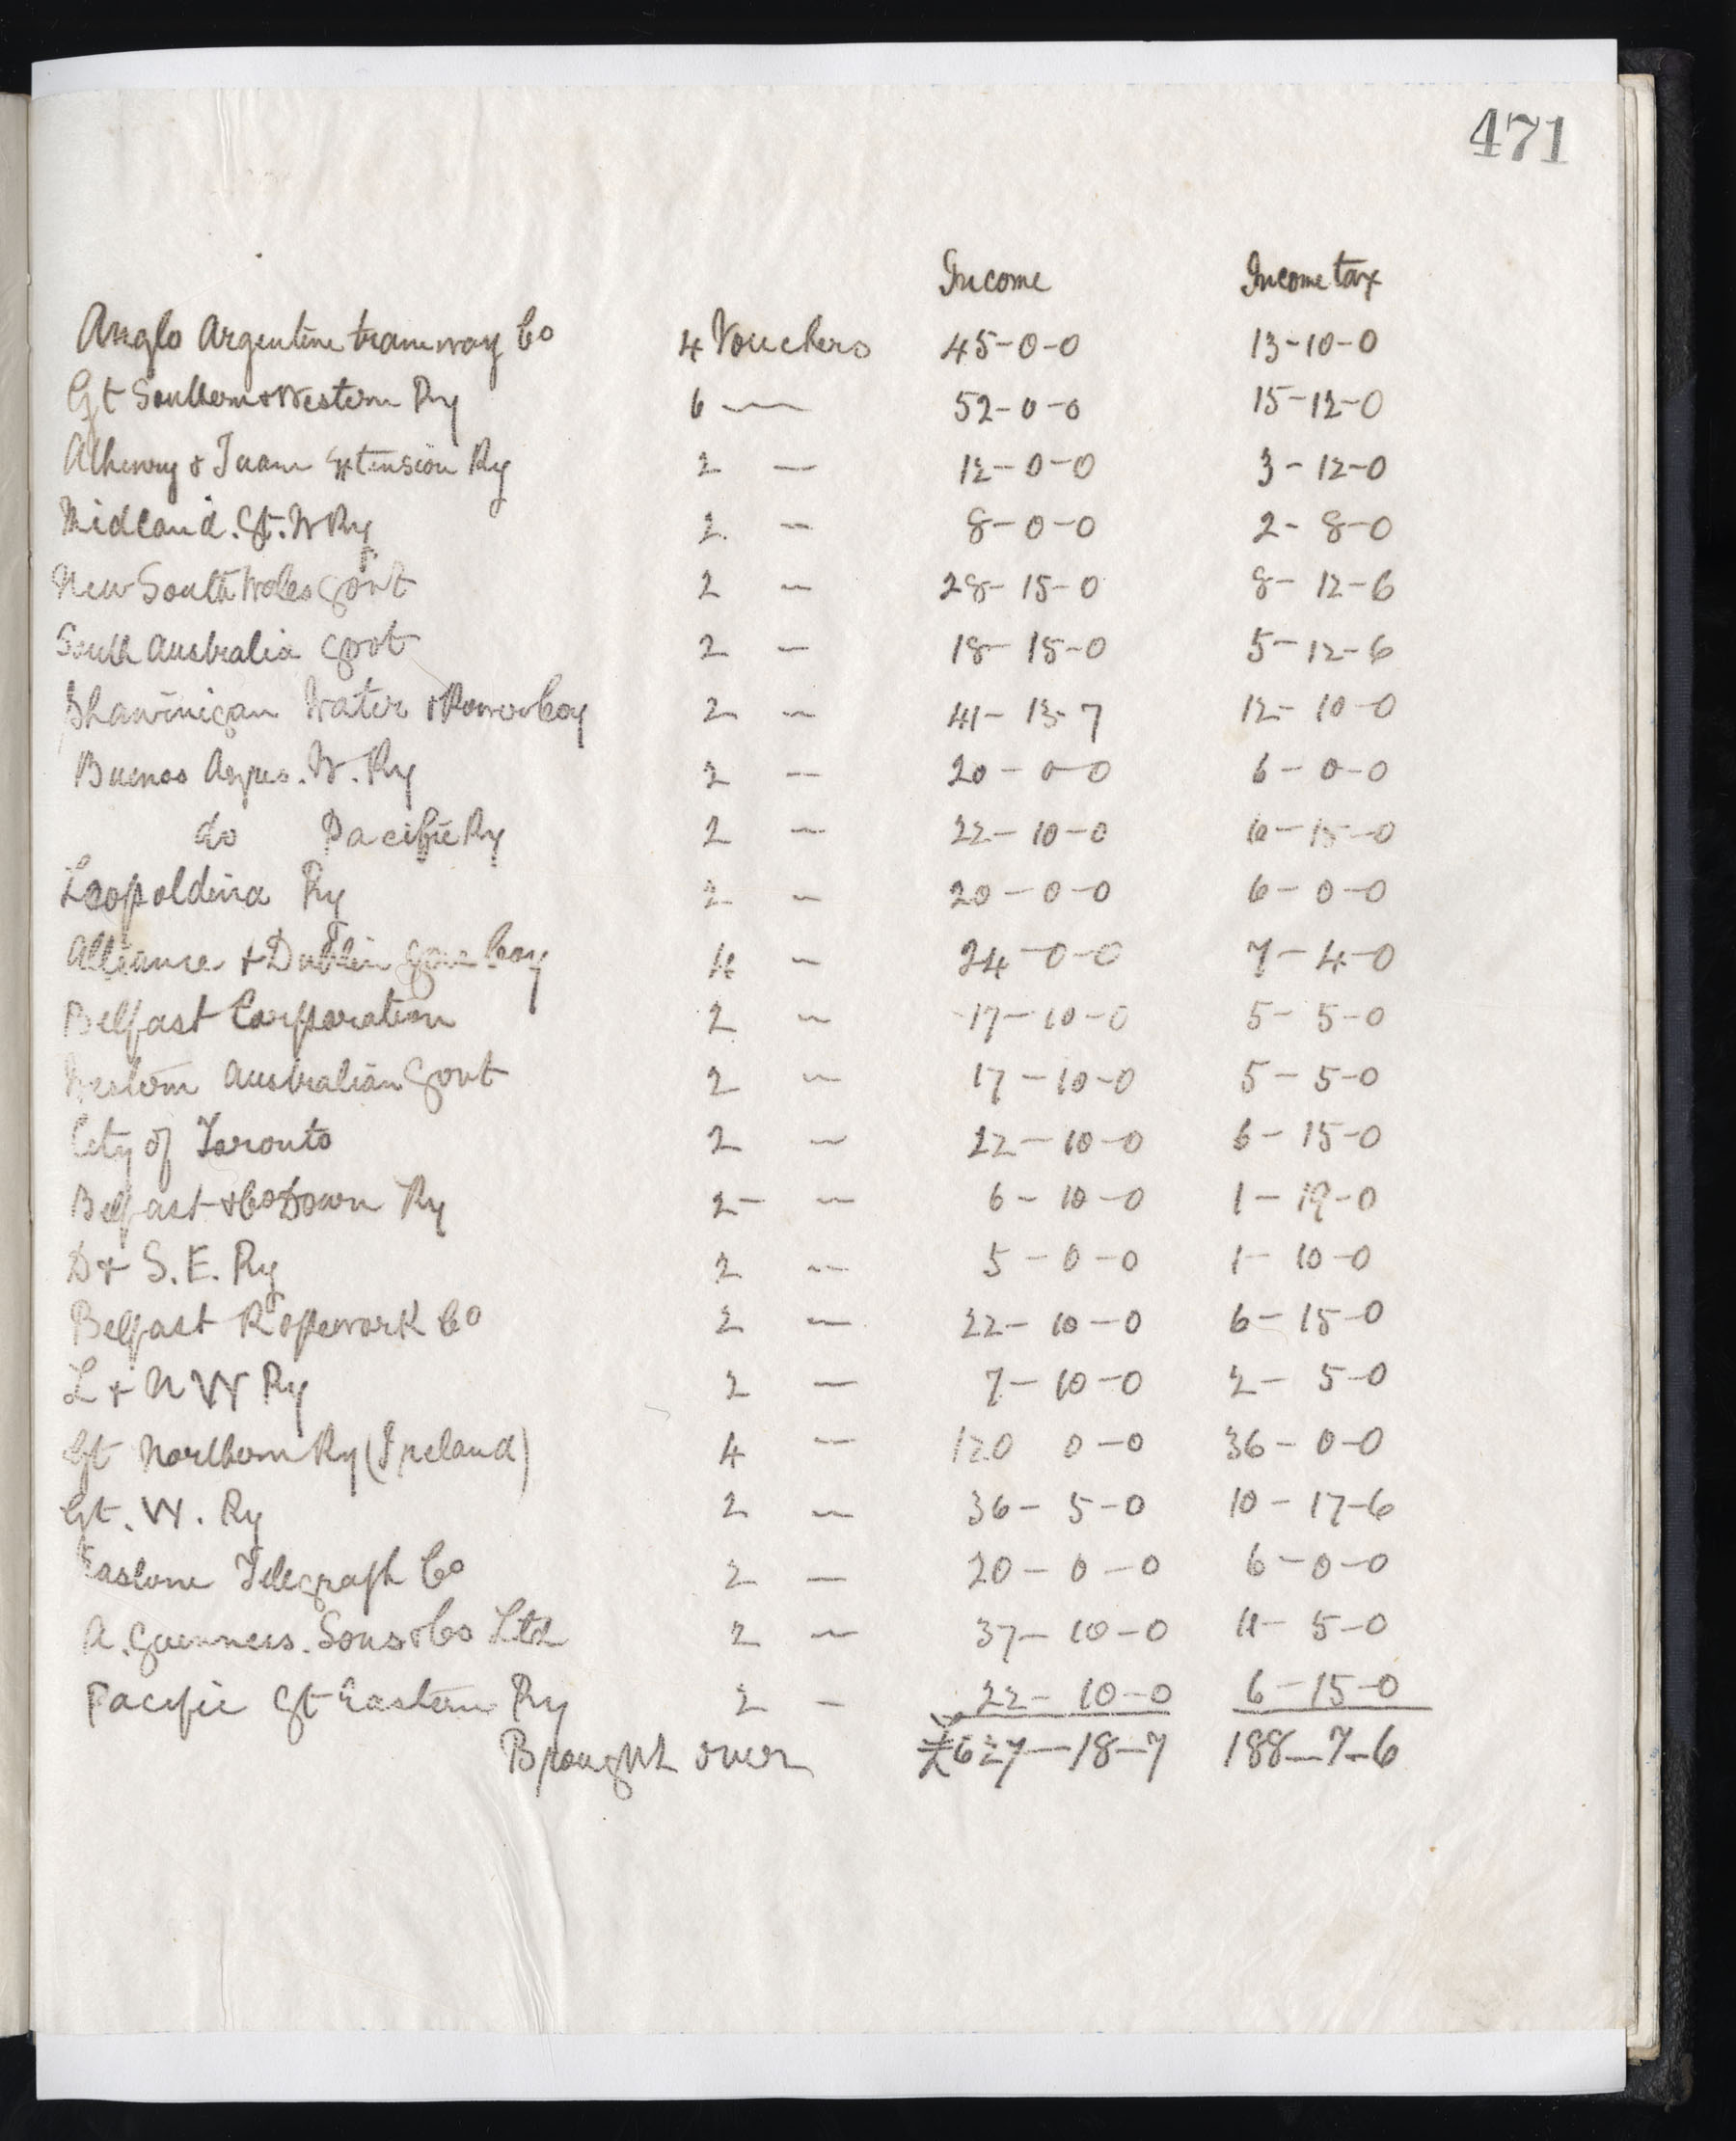 471
Income Income tax
Anglo Argentine tramway Co 4 Vouchers 45-0-0 13-10-0
Gt Southern & Western Ry 6 — 52-0-0 15-12-0
Athenry & Tuam Extension Ry 2 — 12-0-0 3-12-0
Midland. Gt. W Ry 2 — 8-0-0 2-8-0
New South Wales Govt 2 — 28-15-0 8-12-6
South Australia Govt 2 — 18-15-0 5-12-6
Shawinigan Water & Power Coy 2 — 41-13-7 12-10-0
Buenos Ayres. W. Ry 2 — 20-0-0 6-0-0
do Pacific Ry 2 — 22-10-0 6-15-0
Leopoldina Ry 2 — 20-0-0 6-0-0
Alliance & Dublin Gas Coy 4 — 24-0-0 7-4-0
Belfast Corporation 2 — 17-10-0 5-5-0
Western Australian Govt 2 — 17-10-0 5-5-0
City of Toronto 2 — 22-10-0 6-15-0
Belfast & Co Down Ry 2 — 6-10-0 1-19-0
D & S. E. Ry 2 — 5-0-0 1-10-0
Belfast Ropework Co 2 — 22-10-0 6-15-0
L & N W Ry 2 — 7-10-0 2-5-0
Gt Northern Ry (Ireland) 4 — 120 0-0 36-0-0
Gt. W. Ry 2 — 36-5-0 10-17-6
Eastern Telegraph Co 2 — 20-0-0 6-0-0
A. Guenness. Sons & Co Ltd 2 — 37-10-0 11-5-0
Pacific Gt Eastern Ry 2 — 22-10-0 6-15-0
Brought over £627-18-7 188-7-6